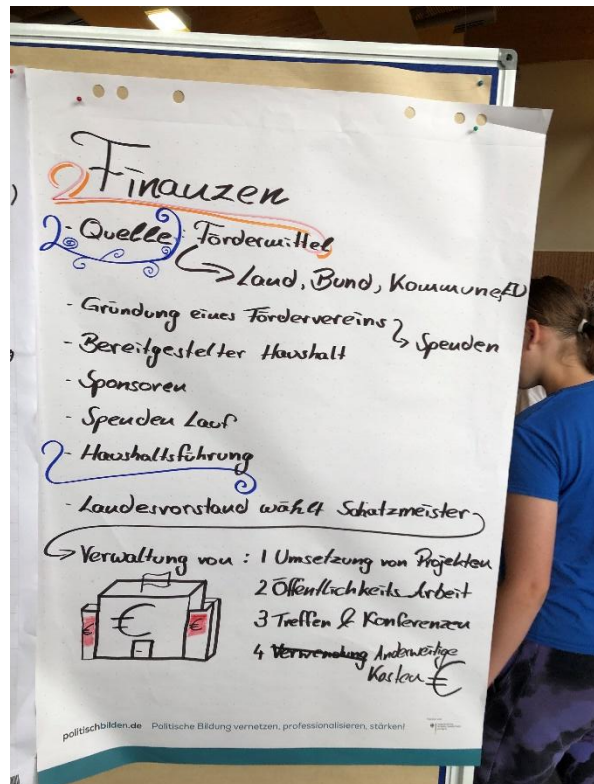 Finanzen
- Quelle: Fördermittel
Land, Bund, Kommune, EU
- Gründung eines Fördervereins
Spenden
- Bereitgestelter Haushalt
- Sponsoren
- Spenden Lauf
- Haushaltsführung
- Landesvorstand wählt Schatzmeister
Verwaltung von: 1 Umsetzung von Projekten
2 Öffentlichkeits Arbeit
3 Treffen & Konferenzen
4 Verwendung Anderweitige
Kosten €
€ € €
politischbilden.de Politische Bildung vernetzen, professionalisieren, stärken!